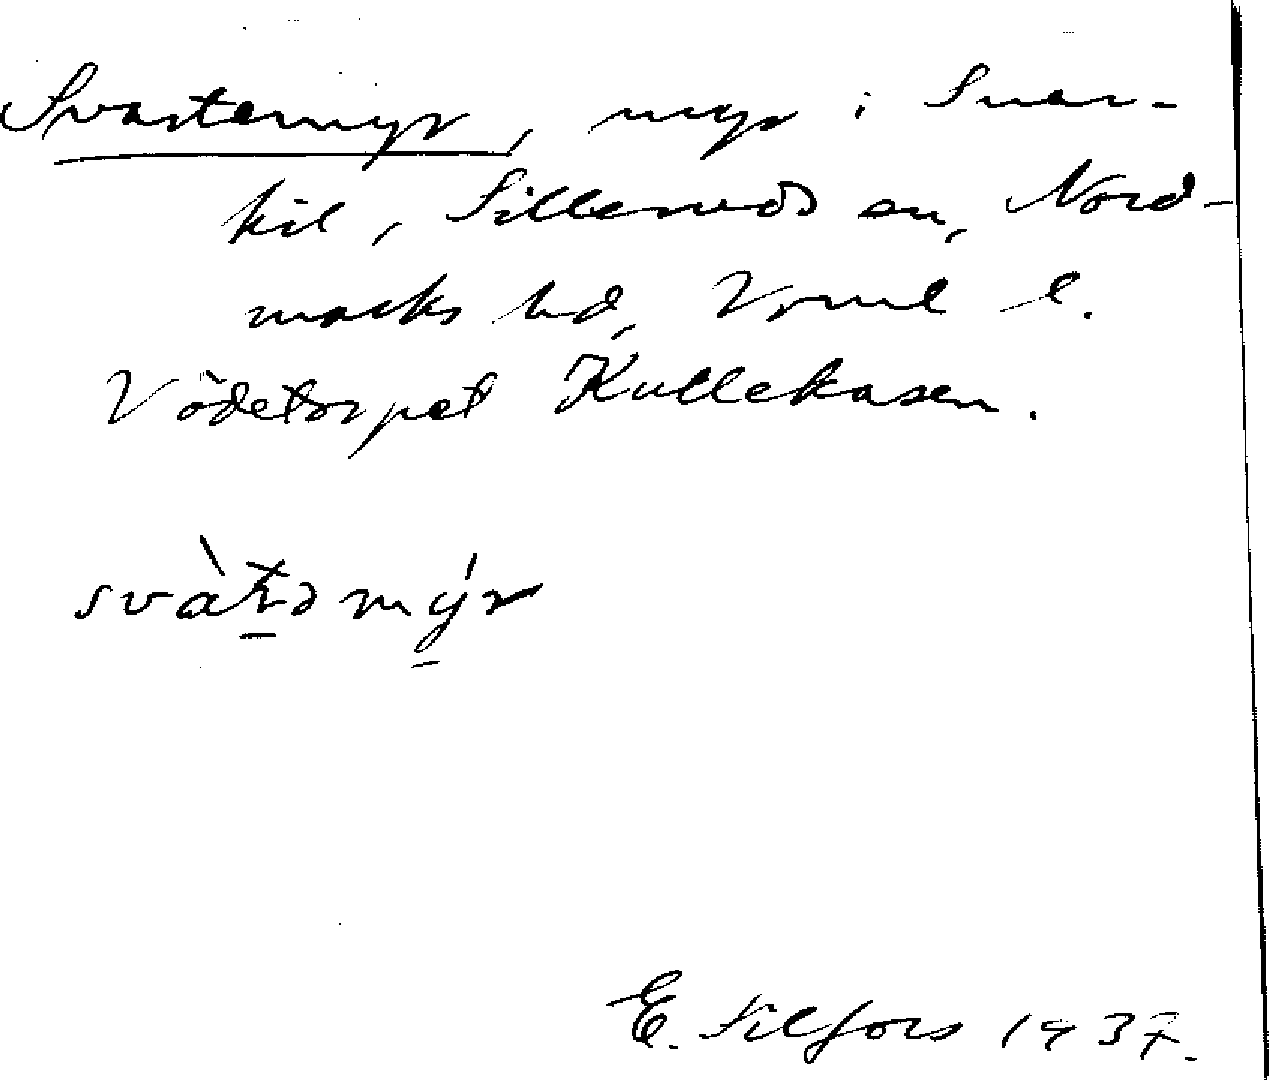 Svartemyr, myr i Sner-
kil, Silleruds sn, Nord-
marks hd, Vrml l.
Vödetorpet Kullekasen.
E. Silfors 1937.